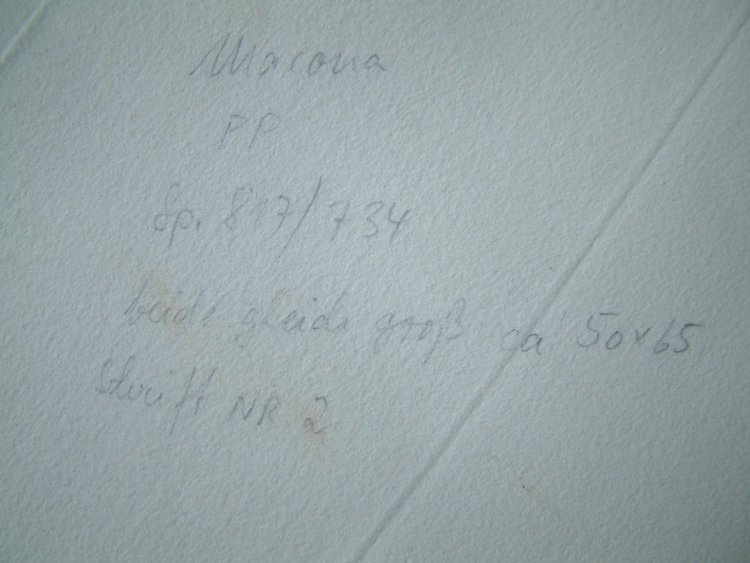 Macona
PP
Sp. 817/734
beide gleich groß ca 50x65
Schrift NR. 2